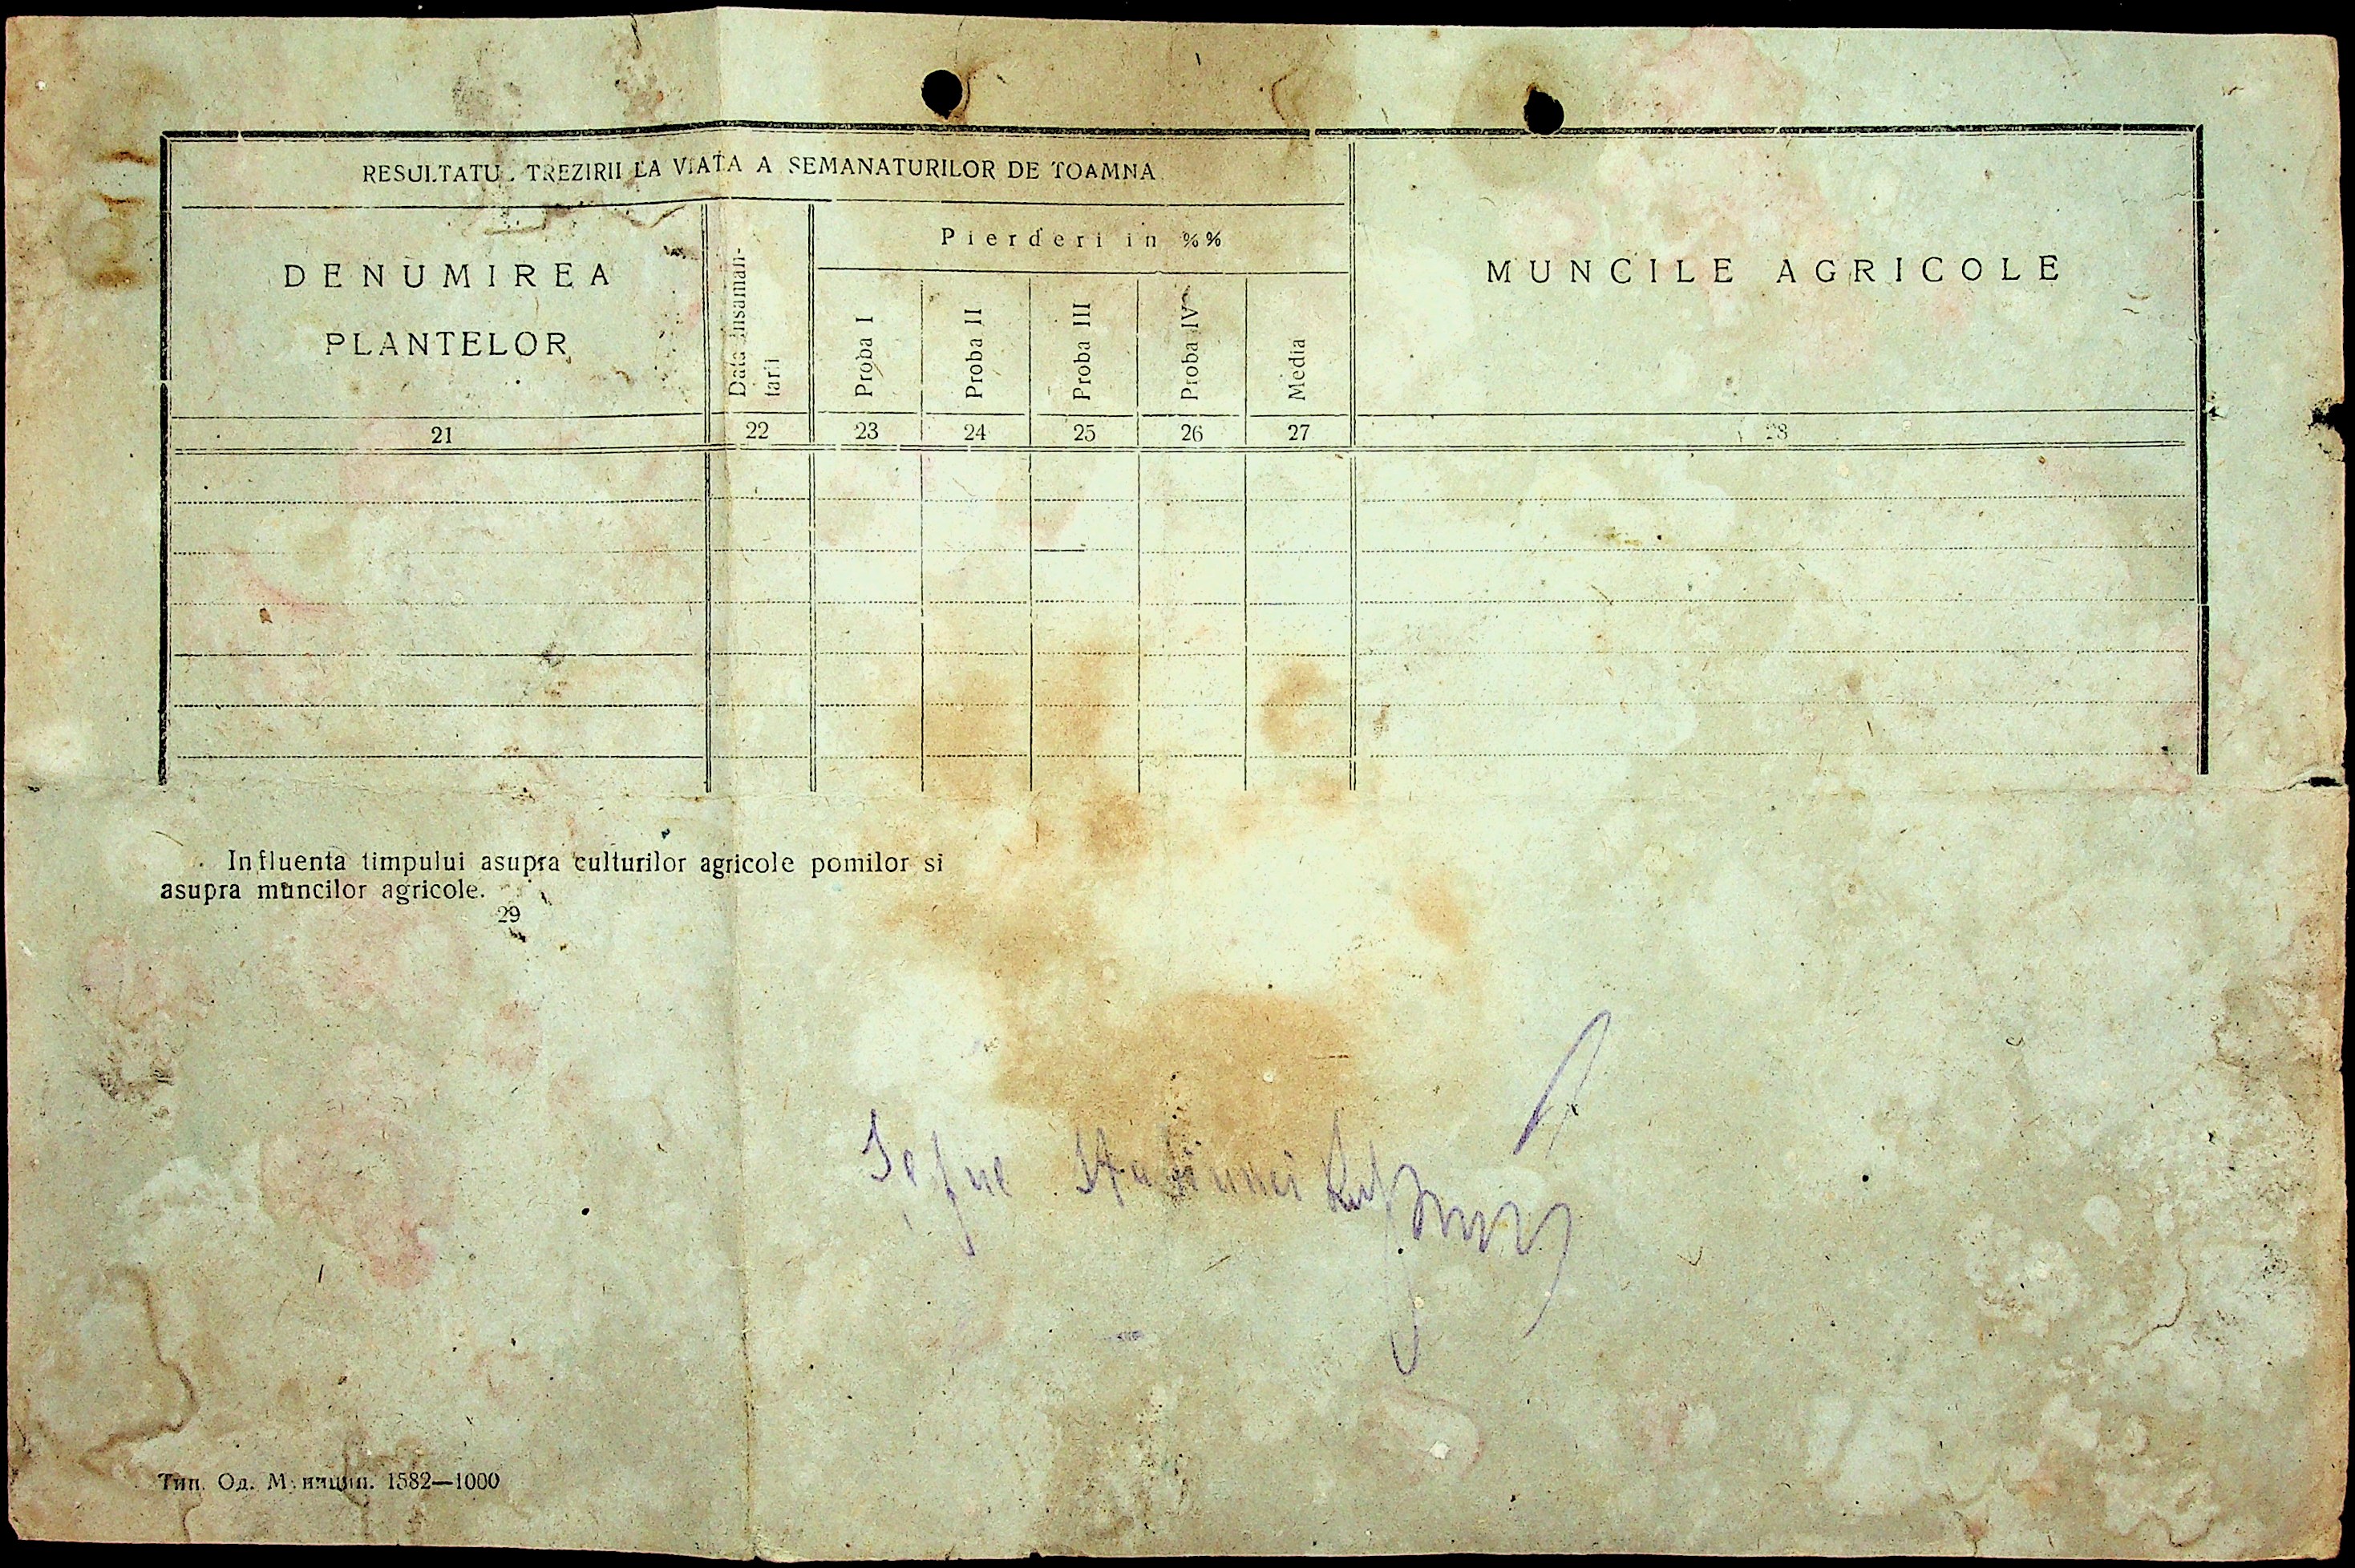 RESULTATUL TREZIRII LA VIATA A SEMANATURILOR DE TOAMNA
MUNCILE AGRICOLE
DENUMIREA
PLANTELOR
Data insaman-
tarii
Pierderi in %%
Proba I
Proba II
Proba III
Proba IV
Media
21 22 23 24 25 26 27 28
Influenta timpului asupra culturilor agricole pomilor si
asupra muncilor agricole.
29
Șeful Stațiunei
Тип. Од. Муницип. 1582—1000